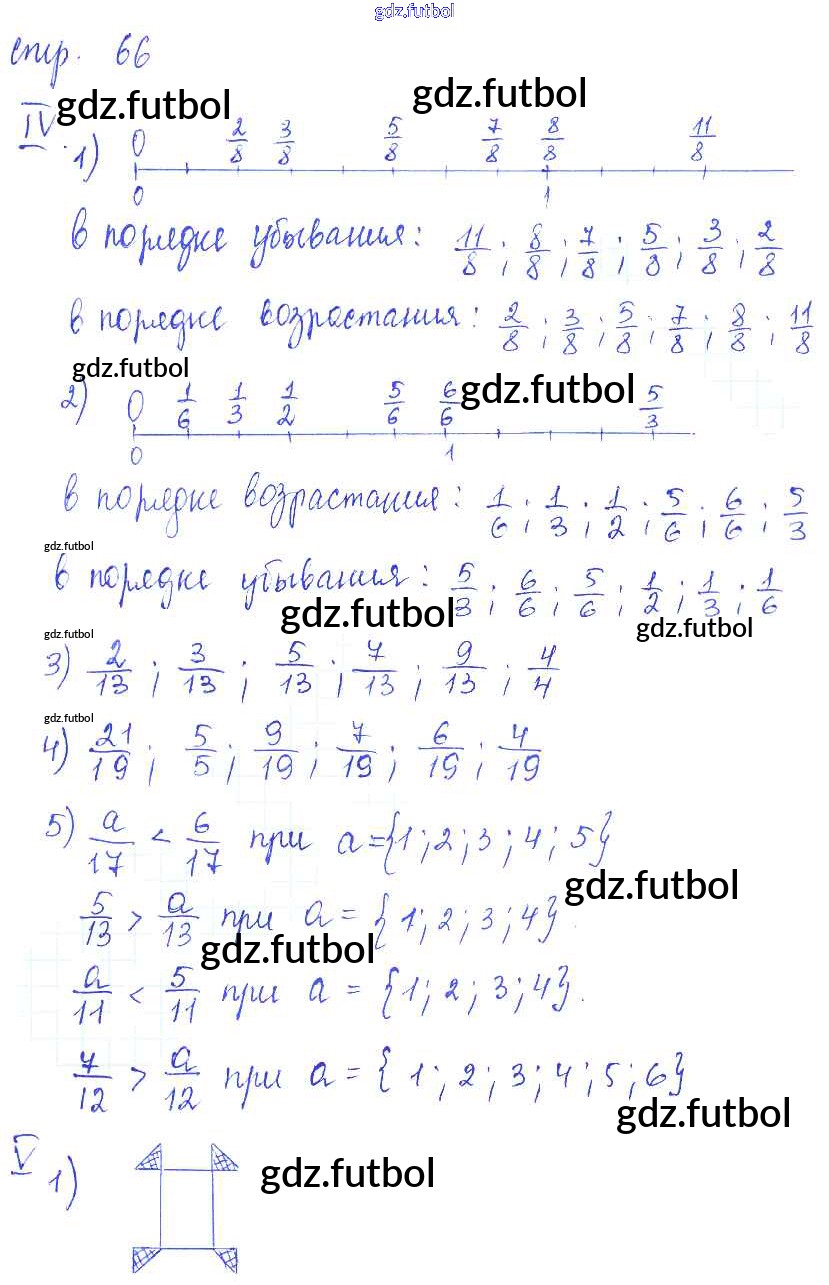 gdz.futbol
стр. 66
gdz.futbol gdz.futbol
IV. 1) 0 2/8 3/8 5/8 7/8 8/8 11/8
0 1
в порядке убывания: 11/8; 8/8; 7/8; 5/8; 3/8; 2/8
в порядке возрастания: 2/8; 3/8; 5/8; 7/8; 8/8; 11/8
gdz.futbol gdz.futbol
2) 0 1/6 1/3 1/2 5/6 6/6 5/3
0 1
в порядке возрастания: 1/6; 1/3; 1/2; 5/6; 6/6; 5/3
gdz.futbol
в порядке убывания: 5/3; 6/6; 5/6; 1/2; 1/3; 1/6
gdz.futbol gdz.futbol
gdz.futbol
3) 2/13; 3/13; 5/13; 7/13; 9/13; 4/4
gdz.futbol
4) 21/19; 5/5; 9/19; 7/19; 6/19; 4/19
5) a/17 < 6/17 при a={1; 2; 3; 4; 5}
gdz.futbol
5/13 > a/13 при a = {1; 2; 3; 4}.
gdz.futbol
a/11 < 5/11 при a = {1; 2; 3; 4}.
7/12 > a/12 при a = { 1; 2; 3; 4; 5; 6}
gdz.futbol
V 1) gdz.futbol